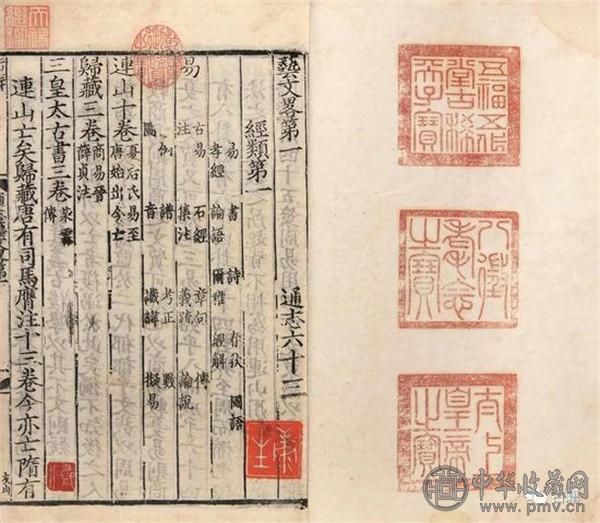 五福五代
堂古稀
天子寶
八徵
耄念
之寶
太上
皇帝
之寶
天祿
繼鑑
藝文畧第一 通志六十三
經類第一
易 書 詩 春秋 國語
孝經 論語 爾雅 經解
易
古易 石經 章句 傳
注 集注 義疏 論說
例 譜 考正 數
圖 音 讖緯 擬易
連山十卷 夏后氏易至
唐始出今亡
歸藏三卷 商易晉
薛貞注
三皇太古書三卷
傳
連山亡矣歸藏唐有司馬膺注十三卷今亦亡隋有
中华收藏网
www.pmv.cn